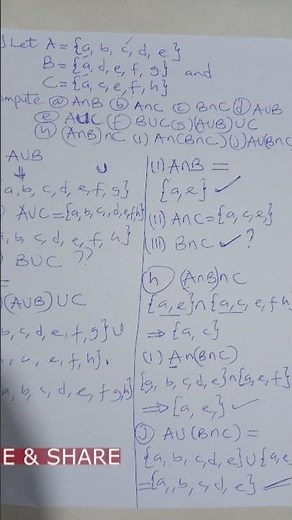 ) Let A = {a, b, c, d, e}
B = {a, d, e, f, g} and
C = {a, c, e, f, h}
mpute (a) A∩B (b) A∩C (c) B∩C (d) A∪B
(e) A∪C (f) B∪C (g) (A∪B)∪C
(h) (A∩B)∩C (i) A∩(B∩C) (j) A∪(B∩C
A∪B
∪
a, b, c, d, e, f, g}
) A∪C = {a, b, c, d, e, f, h}
a, b, c, d, e, f, h}
) B∪C ??
=
(A∪B)∪C
b, c, d, e, f, g} ∪
, c, e, f, h}.
a, b, c, d, e, f, g, h}
(i) A∩B =
{a, e} ✓
(ii) A∩C = {a, c, e}
(iii) B∩C ✓ ?
(h) (A∩B)∩C
{a, e} ∩ {a, c, e, f, h
⇒ {a, c}
(i) A∩(B∩C)
{a, b, c, d, e} ∩ {a, e, f}
⇒ {a, e,} ✓
(j) A∪(B∩C) =
{a, b, c, d, e} ∪ {a, e
= {a, b, c, d, e} ✓
E & SHARE